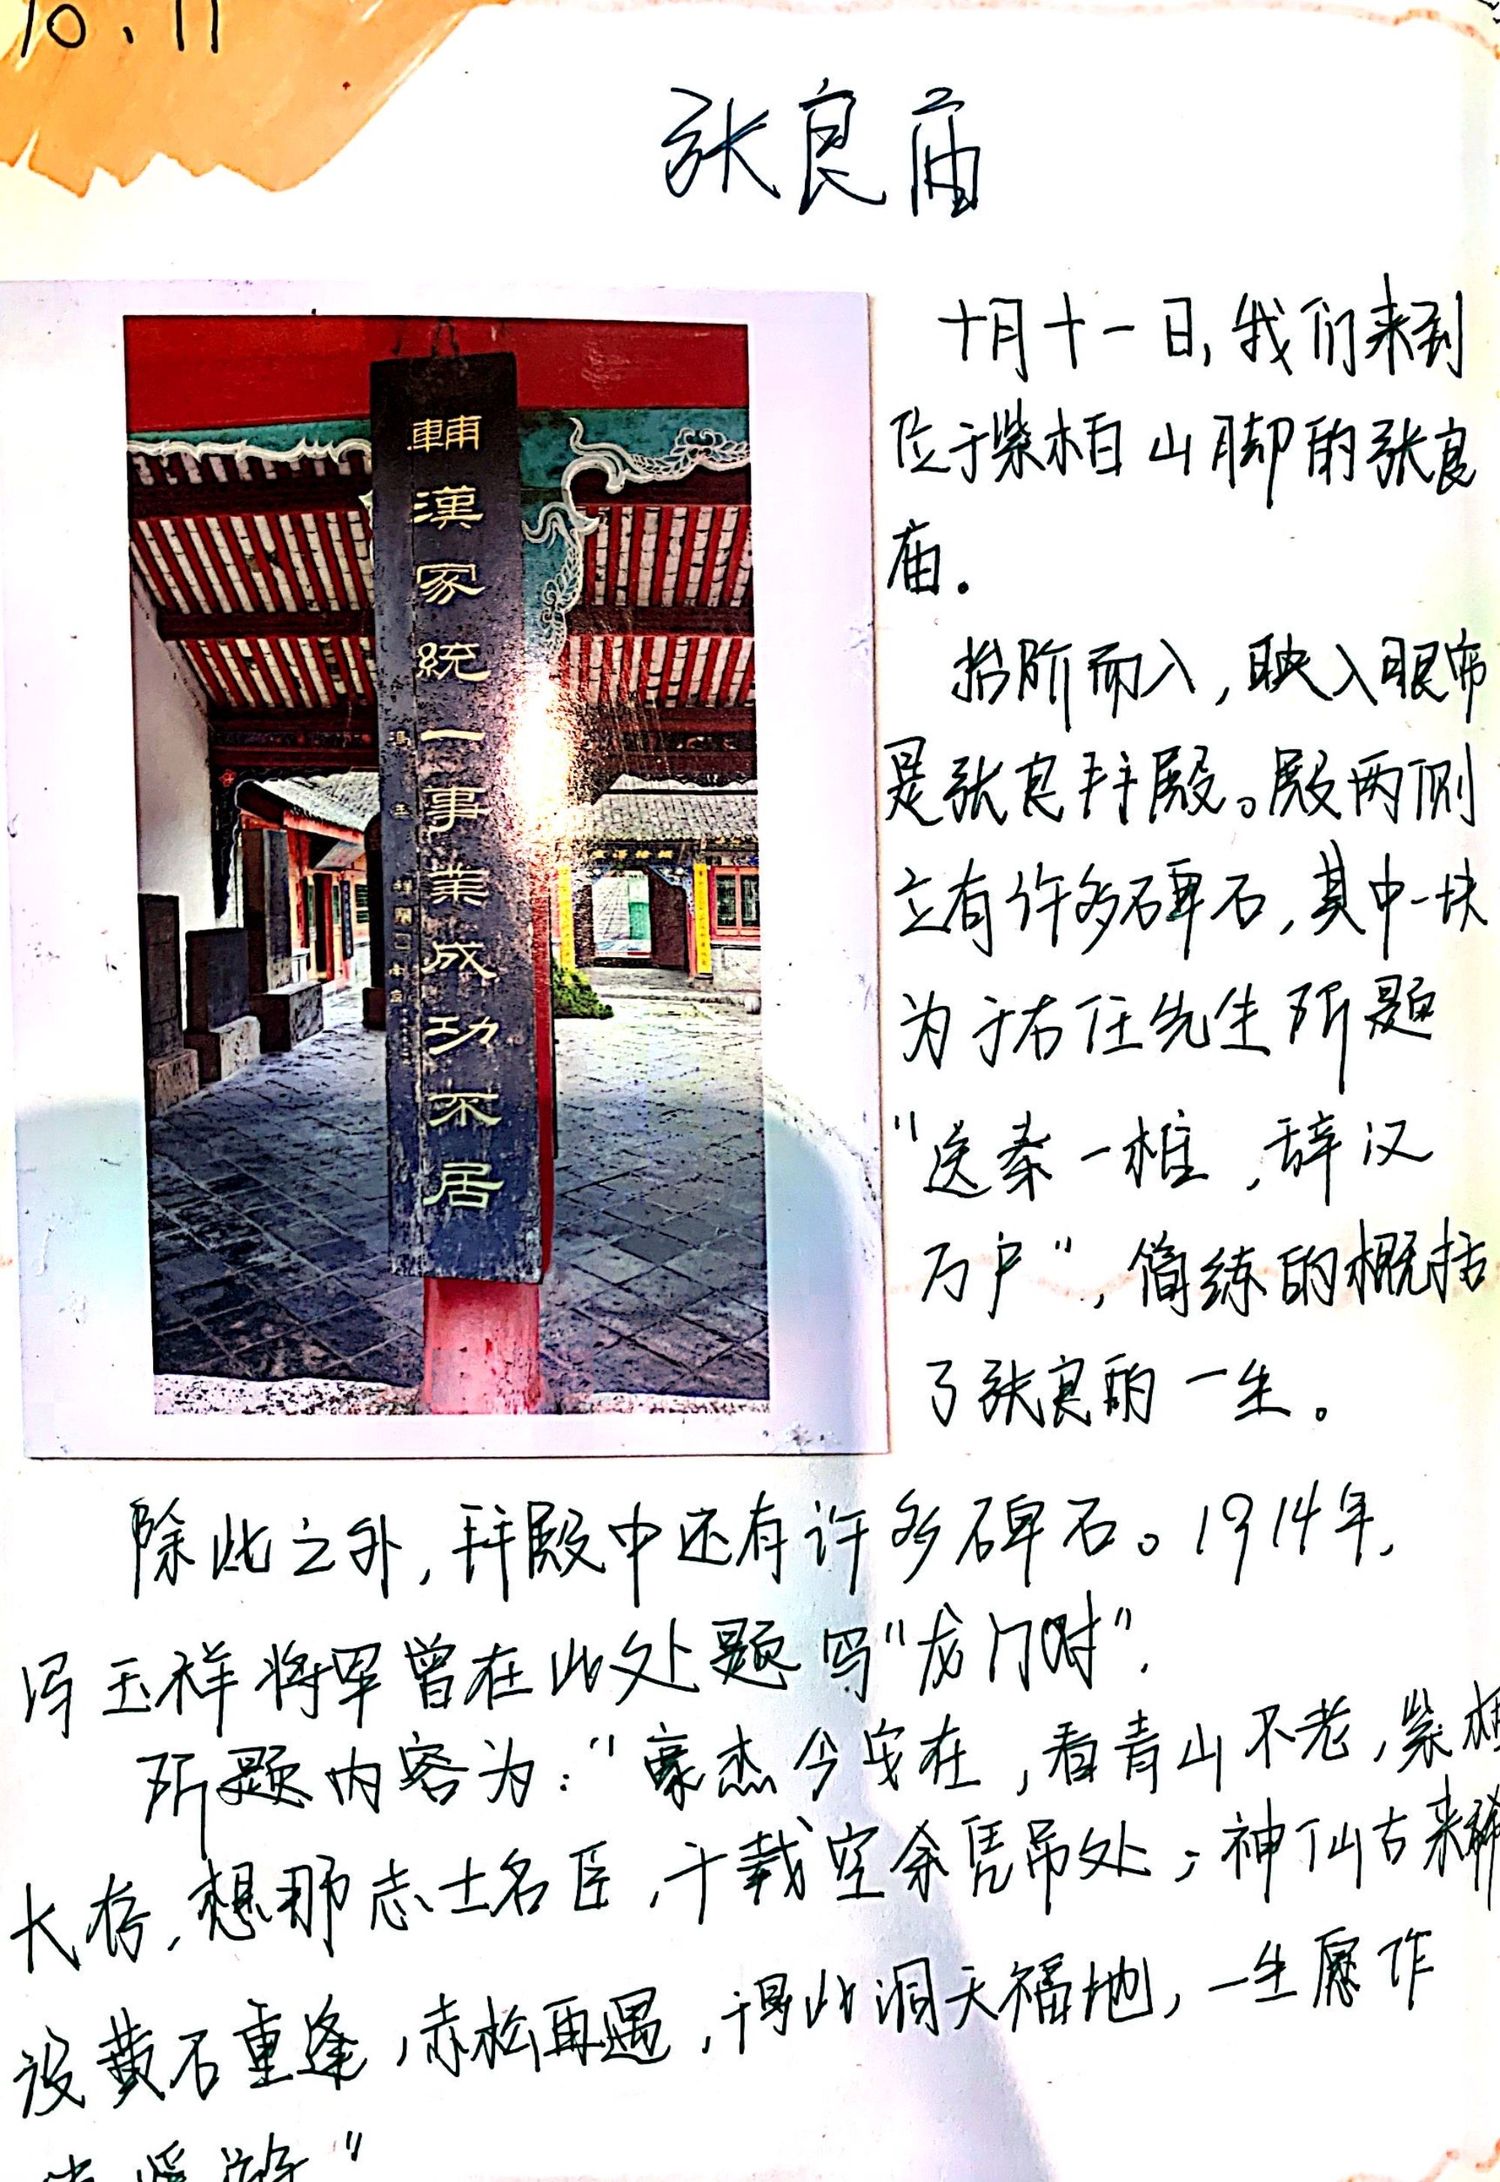 10.11
张良庙
輔漢家統一事業成功不居
十月十一日,我们来到
位于柴柏山脚的张良
庙。
抬阶而入,映入眼帘
是张良拜殿。殿两侧
立有许多碑石,其中一块
为于右任先生所题
"送秦一椎,辞汉
万户",简练的概括
了张良的一生。
除此之外,拜殿中还有许多碑石。1914年,
冯玉祥将军曾在此处题写"龙门对".
所题内容为:"豪杰今安在,看青山不老,紫柏
长存,想那志士名臣,千载空余凭吊处;神仙古来稀
设黄石重逢,赤松再遇,得此洞天福地,一生愿作